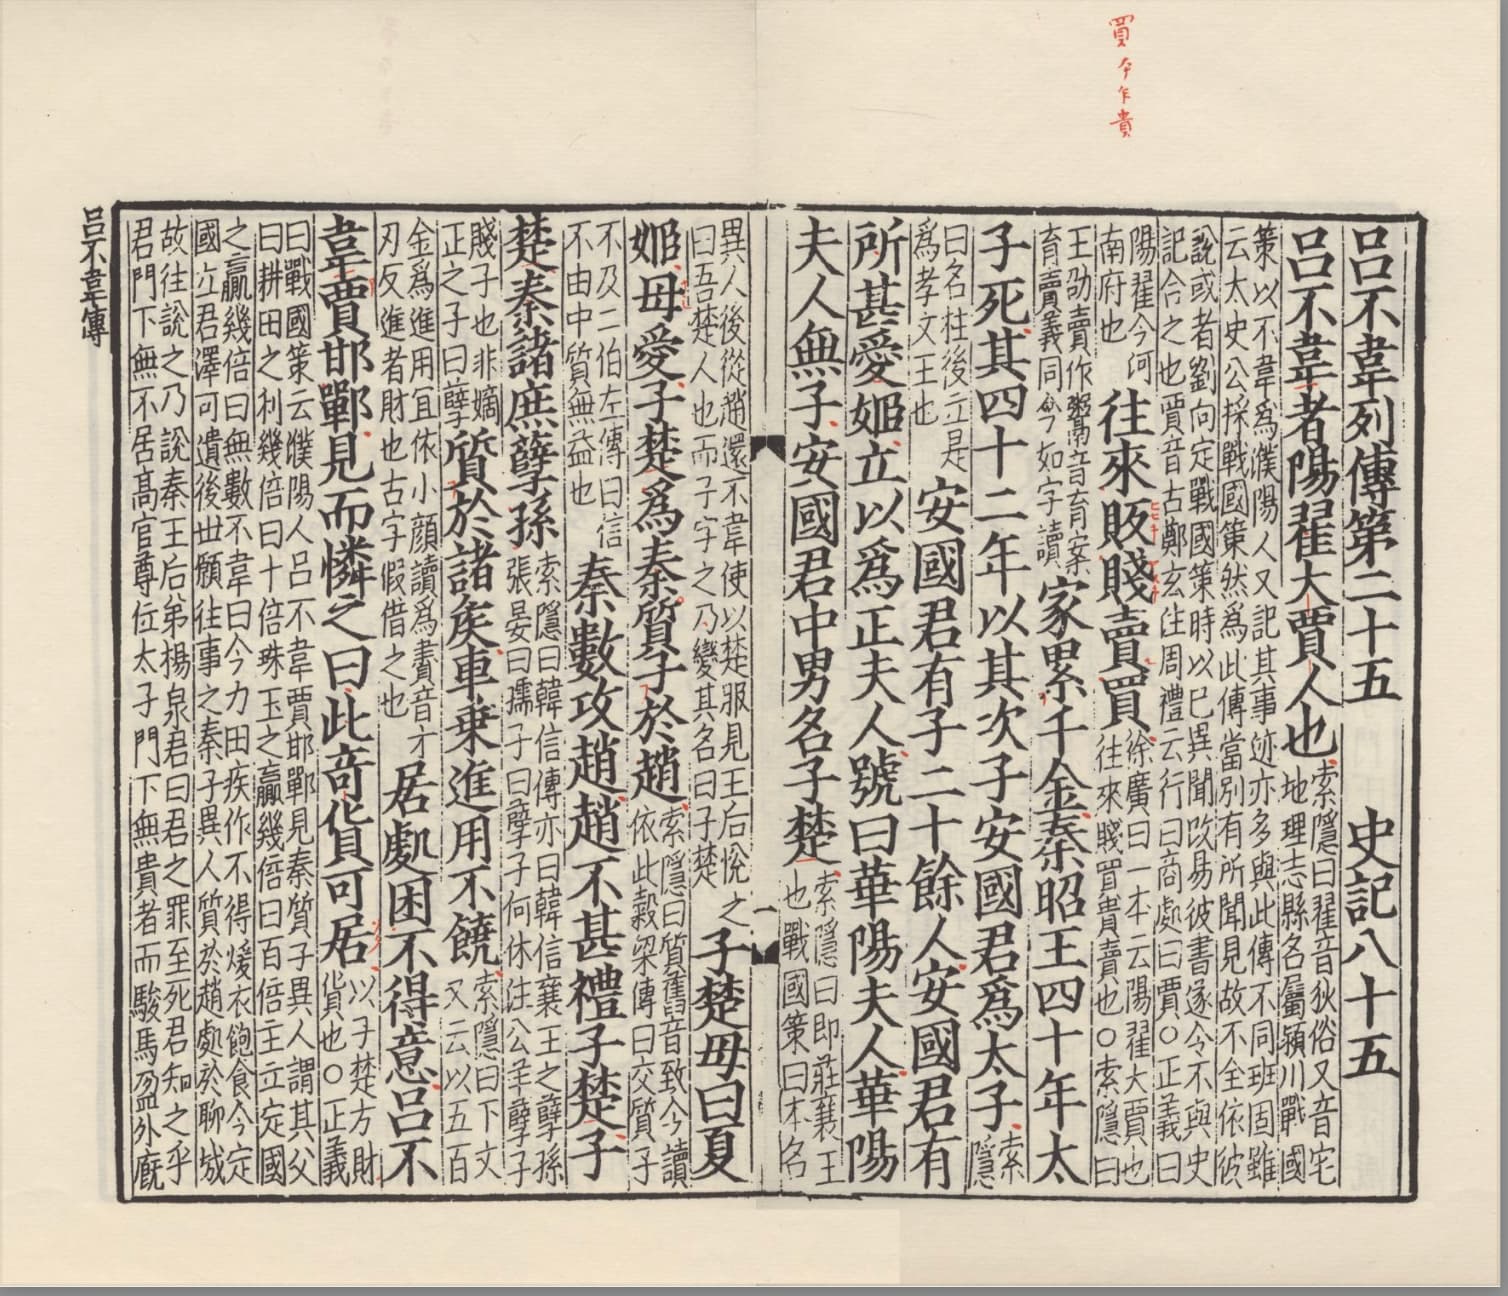 買今乍貴
呂不韋列傳第二十五　史記八十五
呂不韋者陽翟大賈人也
索隱曰翟音狄俗又音宅
地理志縣名屬潁川戰國
策以不韋爲濮陽人又記其事迹亦多與此傳不同班固雖
云太史公採戰國策然爲此傳當別有所聞見故不全依彼
說或者劉向定戰國策時以已異聞改易彼書遂令不與史
記合之也賈音古鄭玄注周禮云行曰商處曰賈○正義曰
陽翟今河
南府也
往來販賤賣買
徐廣曰一本云陽翟大賈也
往來賤買貴賣也○索隱曰
王劭賣作鬻音育案
育賣義同今如字讀
家累千金秦昭王四十年太
子死其四十二年以其次子安國君爲太子
索
隱
曰名柱後立是
爲孝文王也
安國君有子二十餘人安國君有
所甚愛姬立以爲正夫人號曰華陽夫人華陽
夫人無子安國君中男名子楚
索隱曰即莊襄王
也戰國策曰本名
異人後從趙還不韋使以楚服見王后悅之
曰吾楚人也而子字之乃變其名曰子楚
子楚母曰夏
姬毋愛子楚爲秦質子於趙
索隱曰質舊音致今讀
依此穀梁傳曰交質子
不及二伯左傳曰信
不由中質無益也
秦數攻趙趙不甚禮子楚子
楚秦諸庶孽孫
索隱曰韓信傳亦曰韓信襄王之孽孫
張晏曰孺子曰孽子何休注公羊孽子
賤子也非嫡
正之子曰孽
質於諸矦車乗進用不饒
索隱曰下文
又云以五百
金爲進用宜依小顔讀爲賮音才
刃反進者財也古字假借之也
居處困不得意呂不
韋賈邯鄲見而憐之曰此奇貨可居
以子楚方財
貨也○正義
曰戰國策云濮陽人呂不韋賈邯鄲見秦質子異人謂其父
曰耕田之利幾倍曰十倍珠玉之贏幾倍曰百倍主立定國
之贏幾倍曰無數不韋曰今力田疾作不得煖衣飽食今定
國立君澤可遺後世願往事之秦子異人質於趙處於聊城
故往說之乃說秦王后弟楊泉君曰君之罪至死君知之乎
君門下無不居髙官尊位太子門下無貴者而駿馬盈外廐
呂不韋傳